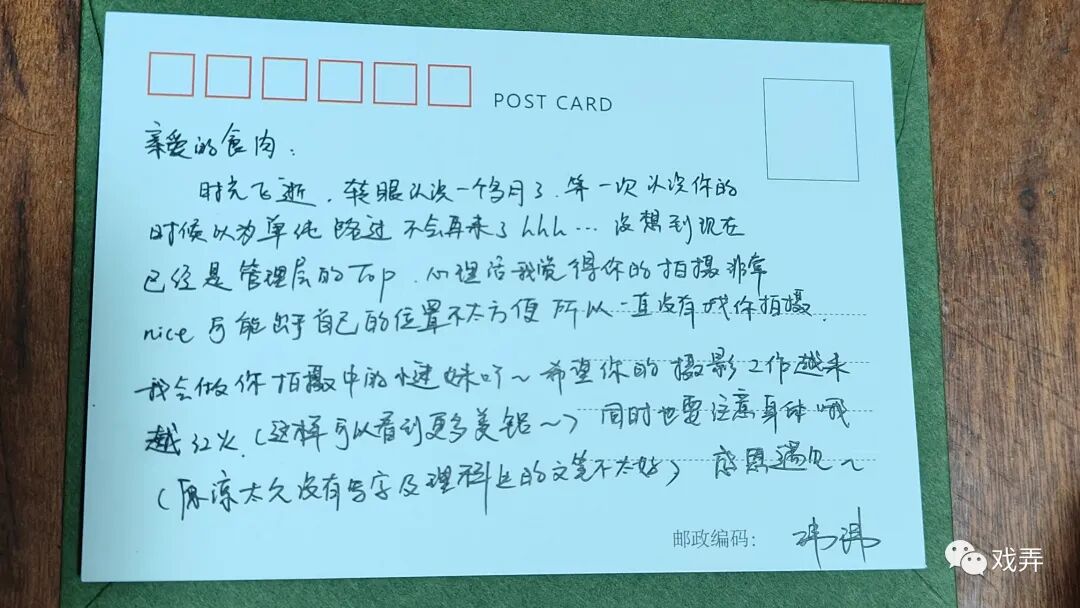 POST CARD
亲爱的食肉：
时光飞逝，转眼认识一个多月了，第一次认识你的
时候以为单纯路过不会再来了hhh…没想到现在
已经是管理层的Top，心理话我觉得你的拍摄非常
nice 可能出于自己的位置不太方便 所以一直没有找你拍摄，
我会做你拍摄中的小迷妹吖～希望你的摄影工作越来
越红火，（这样可以看到更多美照～）同时也要注意身体哦
（原谅太久没有写字及理科生的文笔不太好） 感恩遇见～
邮政编码：
戏弄